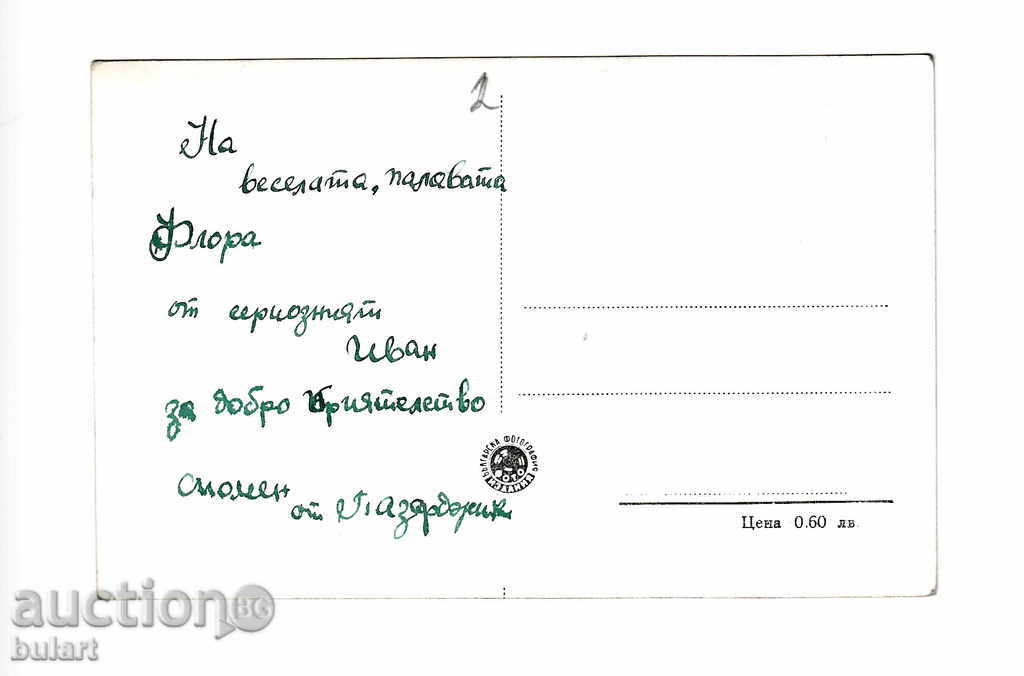 2
На
веселата, палавата
Флора
от сериозният
Иван
за добро приятелство
спомен
от Пазарджик
БЪЛГАРСКА ФОТОГРАФИЯ
ФОТО
ИЗДАНИЕ
Цена 0.60 лв.
auctionBG
bulart